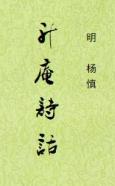 明 杨慎
升庵詩話